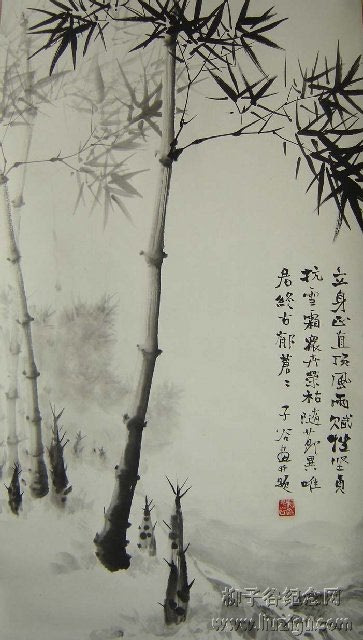 立身正直頂風雨賦性堅貞
抗雪霜眾卉榮枯隨節異唯
君終古郁蒼〻 子谷畫并題
柳子谷纪念网
www.liuzigu.com